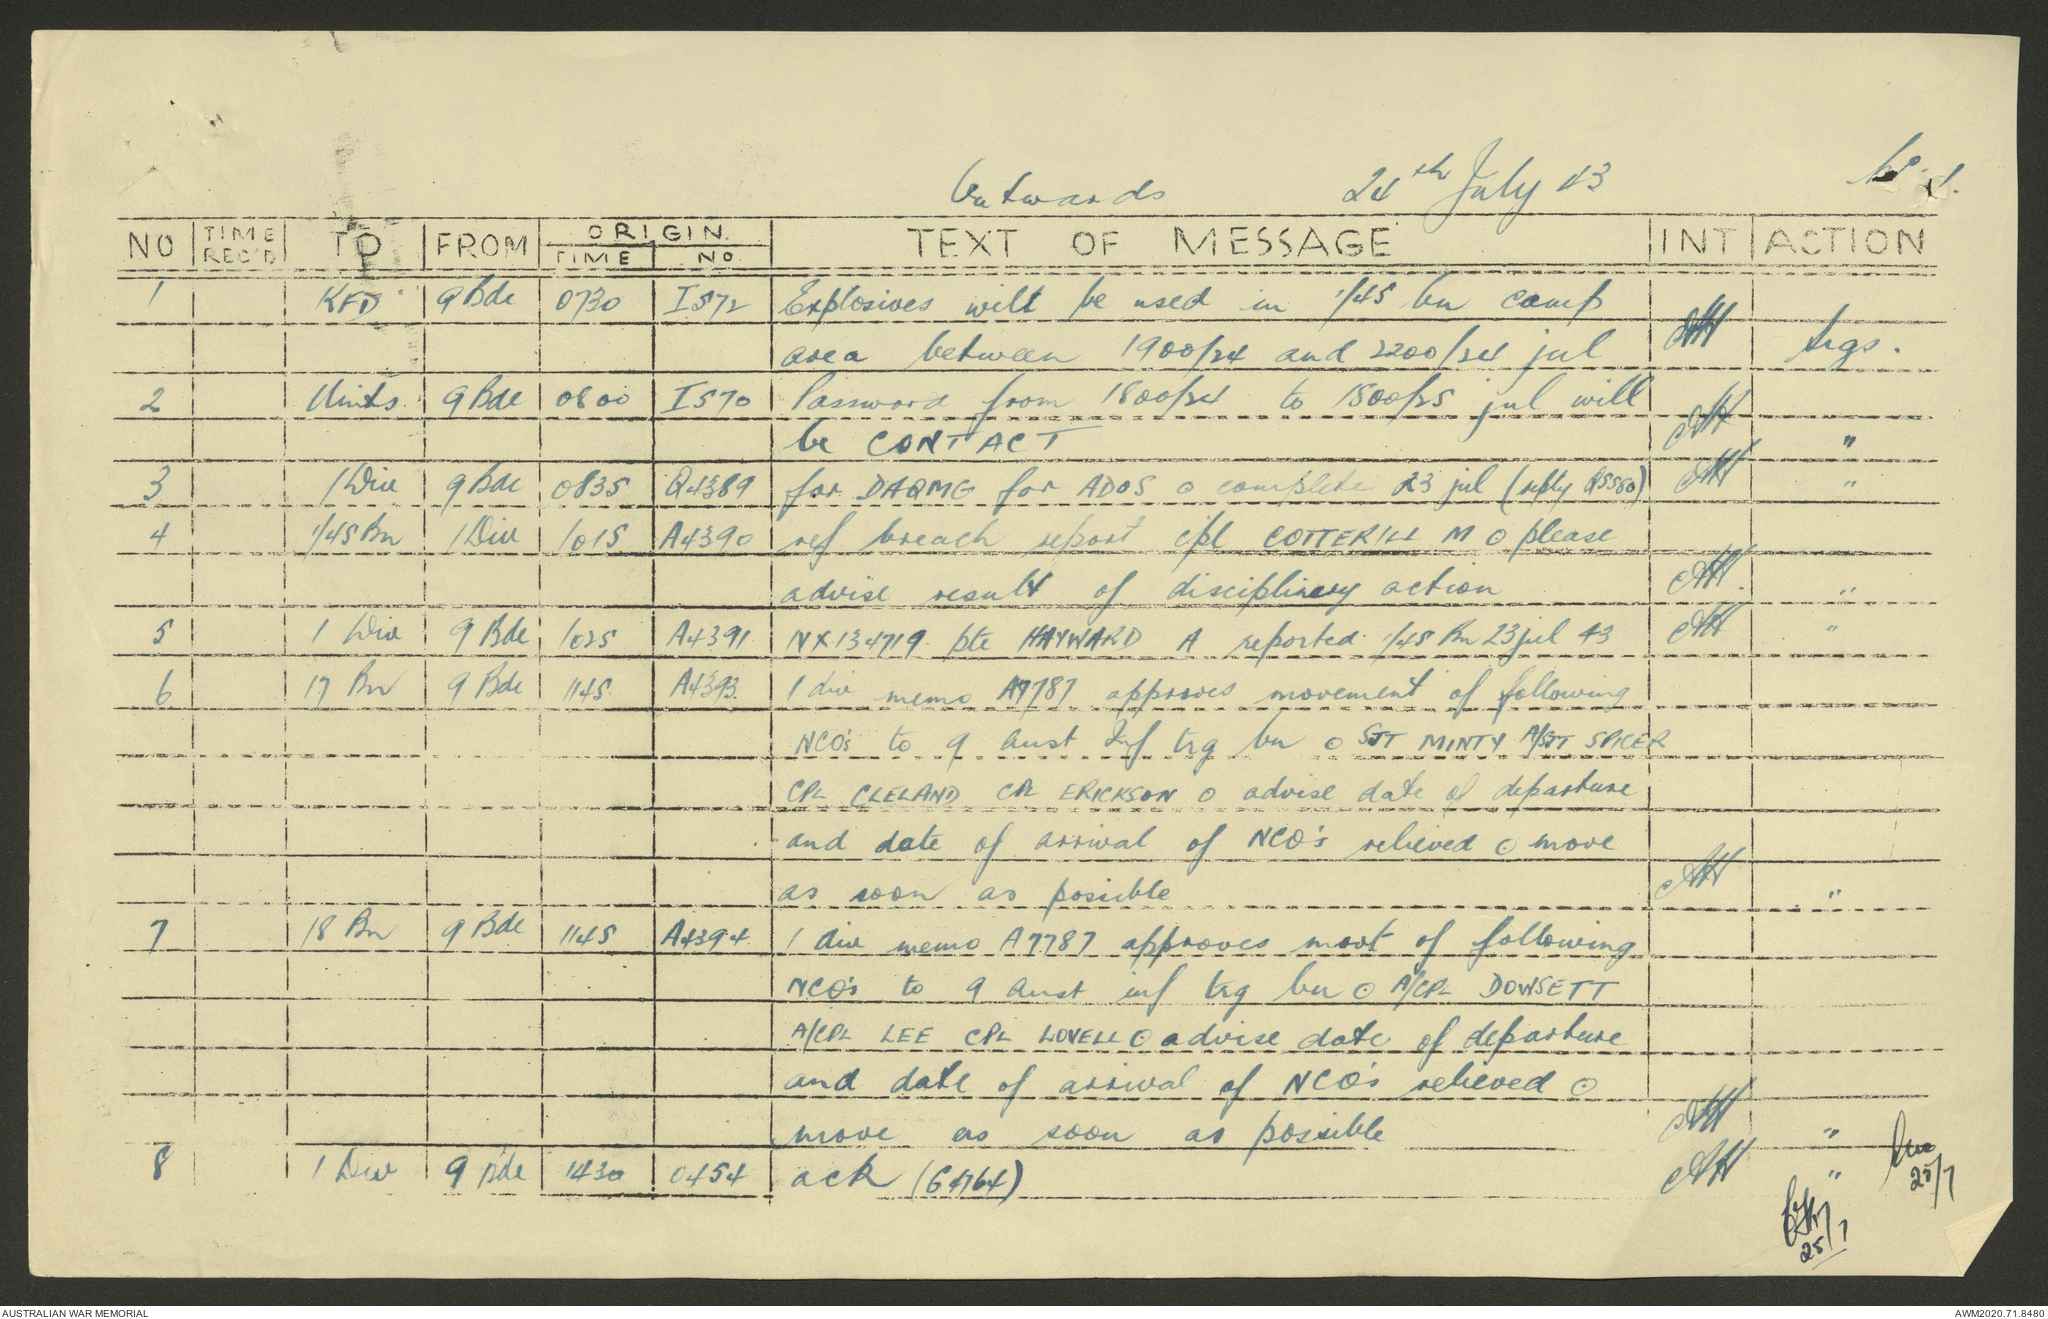 Outwards 24th July 43 No. 1.
NO TIME REC'D TO FROM ORIGIN TIME NO TEXT OF MESSAGE INT ACTION
1 KFD 9 Bde 0730 I572 Explosives will be used in 1/45 bn camp
area between 1900/24 and 2200/24 jul trgs.
2 Units 9 Bde 0800 I570 Password from 1800/24 to 1800/25 jul will
be CONTACT "
3 1 Div 9 Bde 0835 Q4389 for DAQMG for ADOS o complete 23 jul (reply Q5580) "
4 1/45 Bn 1 Div 1015 A4390 ref breach report cpl COTTERILL M o please
advise result of disciplinary action "
5 1 Div 9 Bde 1025 A4391 NX134719 pte HAYWARD A reported 1/45 Bn 23 jul 43 "
6 17 Bn 9 Bde 1145 A4393 1 div memo A7787 approves movement of following
NCO's to 9 Aust Inf trg bn o SJT MINTY A/SJT SPICER
CPL CLELAND CPL ERICKSON o advise date of departure
and date of arrival of NCO's relieved o move
as soon as possible "
7 18 Bn 9 Bde 1145 A4394 1 div memo A7787 approves movt of following
NCO's to 9 Aust inf trg bn o A/CPL DOWSETT
A/CPL LEE CPL LOVELL o advise date of departure
and date of arrival of NCO's relieved o
move as soon as possible "
8 1 Div 9 Bde 1430 0454 ack (G4764) "
25/7
25/7
AUSTRALIAN WAR MEMORIAL AWM2020.71.8480